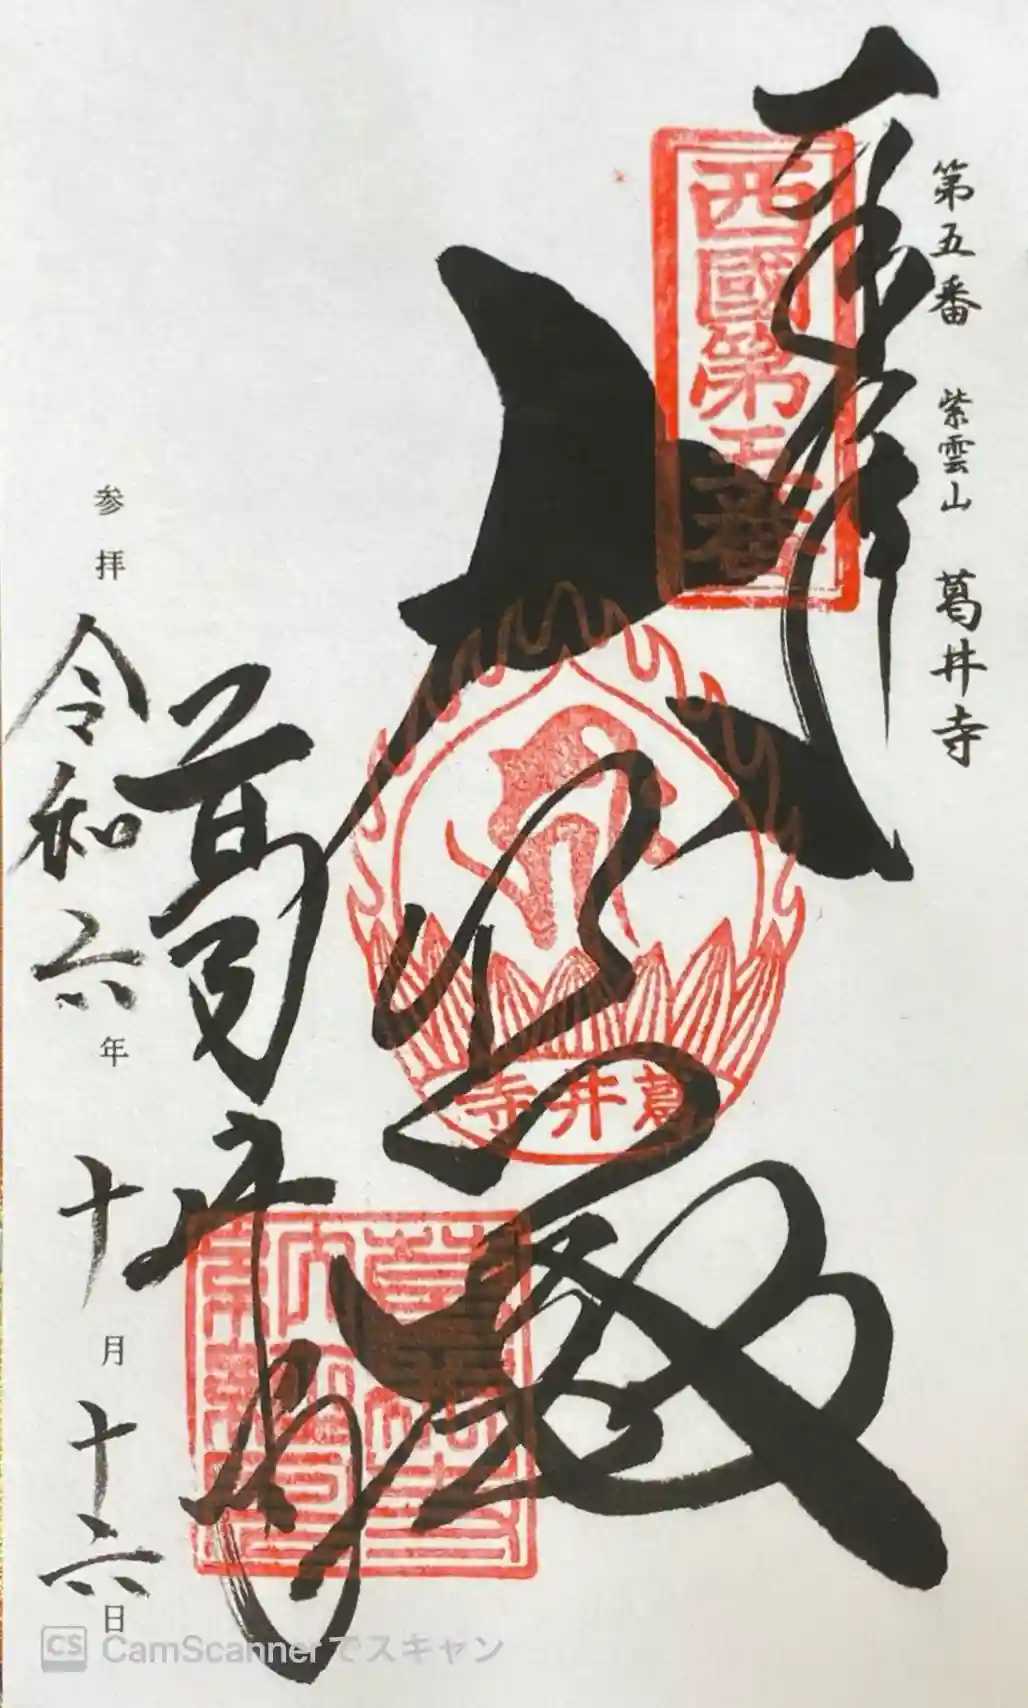 第五番 紫雲山 葛井寺
奉拝
西國第五番
大悲殿
葛井寺
葛井寺
参拝 令和六年 十月 十六日
CS CamScannerでスキャン